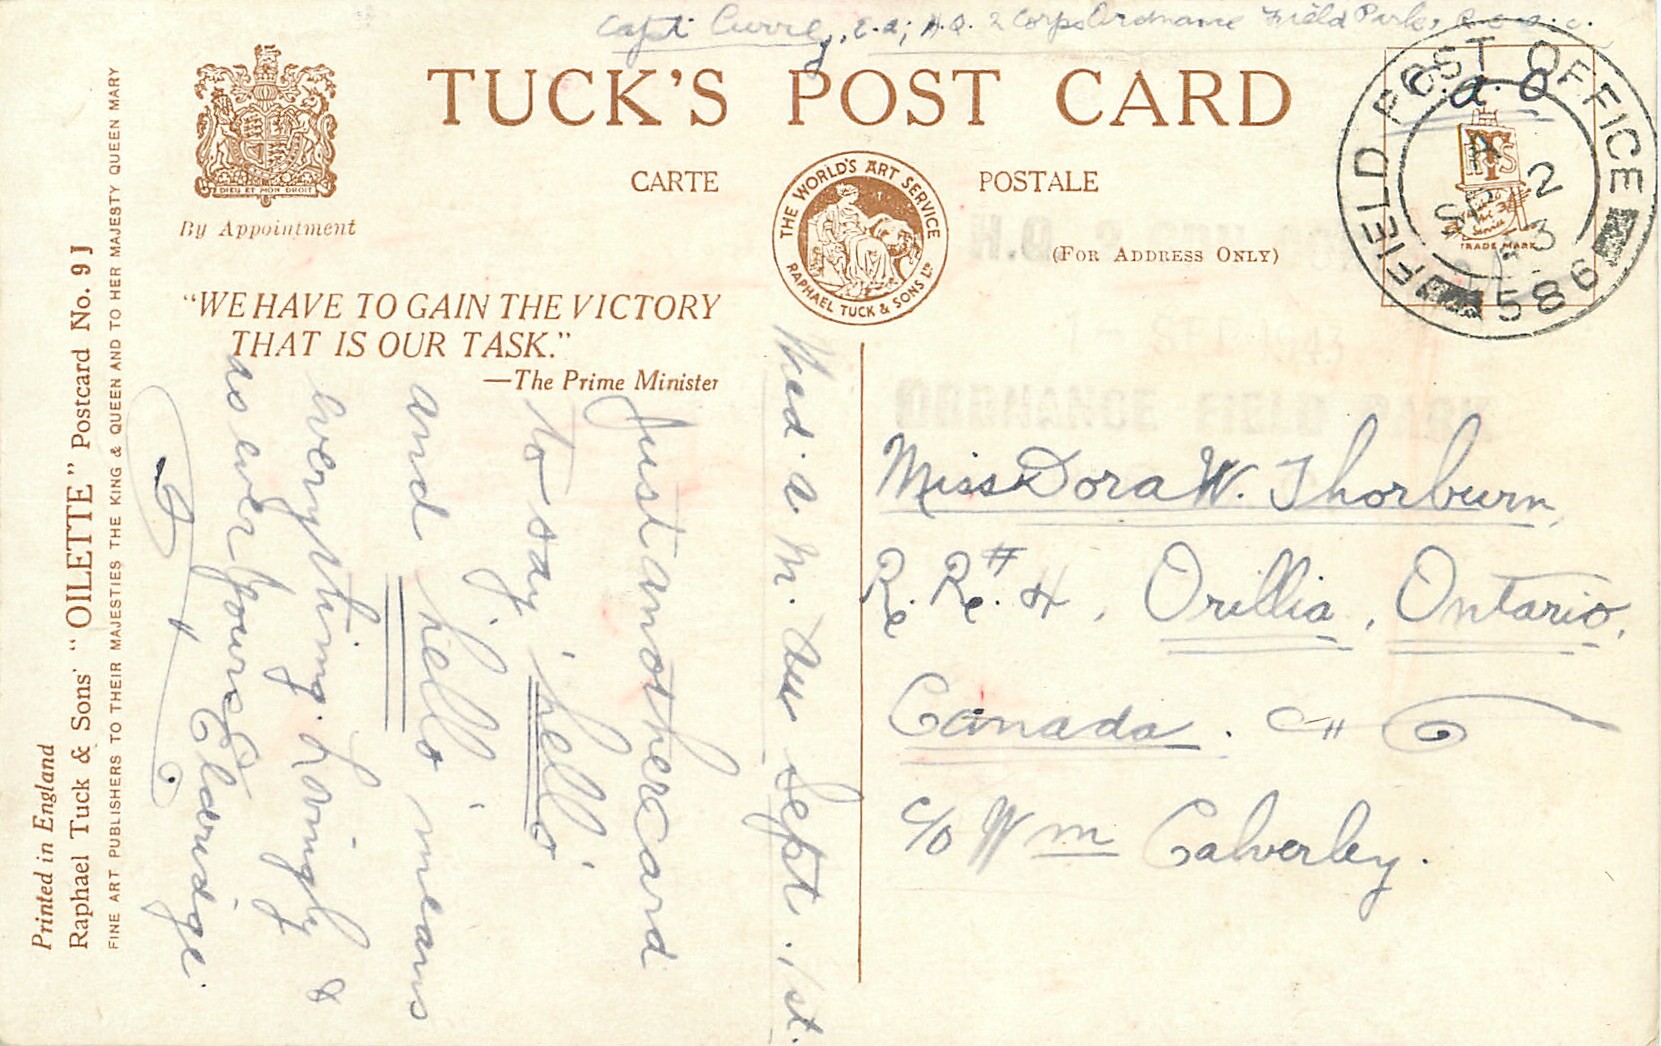 Capt Currey, E.E; H.Q. 2 Corps Ordnance Field Park,
TUCK'S POST CARD
CARTE POSTALE
(FOR ADDRESS ONLY)
DIEU ET MON DROIT
By Appointment
THE WORLD'S ART SERVICE
RAPHAEL TUCK & SONS LTD
"WE HAVE TO GAIN THE VICTORY
THAT IS OUR TASK."
—The Prime Minister
FIELD POST OFFICE
586
A
SP 2
3
TRADE MARK
H.Q. 2
1 - SEP 1943
ORDNANCE FIELD PARK
Wed. a.m. Sept. 1st.
Just another card
to say 'hello'
and 'hello' means
everything. Lovingly &
as ever yours Elaridge.
Miss Dora W. Thorburn,
R. R. # 4, Orillia, Ontario,
Canada.
c/o Wm Calverley.
Printed in England
Raphael Tuck & Sons' "OILETTE" Postcard No. 9 J
FINE ART PUBLISHERS TO THEIR MAJESTIES THE KING & QUEEN AND TO HER MAJESTY QUEEN MARY